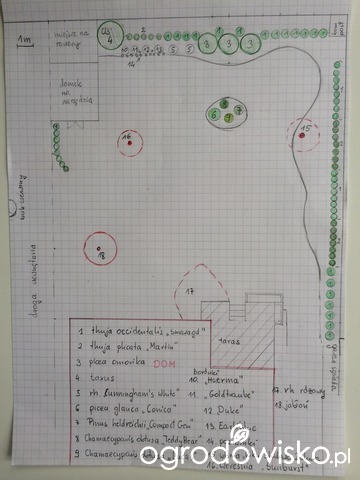 1m
miejsce na
rowery
cis
4
2
1
1
3
3
3
10
11
12
13
5
5
14
domek
na
narzędzia
6
8
7
9
16
15
18
17
droga wewnętrzna
taras
DOM
1 thuja occidentalis "Smaragd"
2 thuja plicata "Martin"
3 picea omorika
4 taxus
5 rh. Cunningham's White"
6 picea glauca "Conica"
7 Pinus heldreichii "Compact Gem"
8 Chamaecyparis obtusa "TeddyBear"
9 Chamaecyparis
borówki
10. "Huerma"
11. "Goldtraube"
12 "Duke"
13 
14
16. czereśnia "Sunburst"
17. rh różowy
18. jabłoń
ogrodowisko.pl